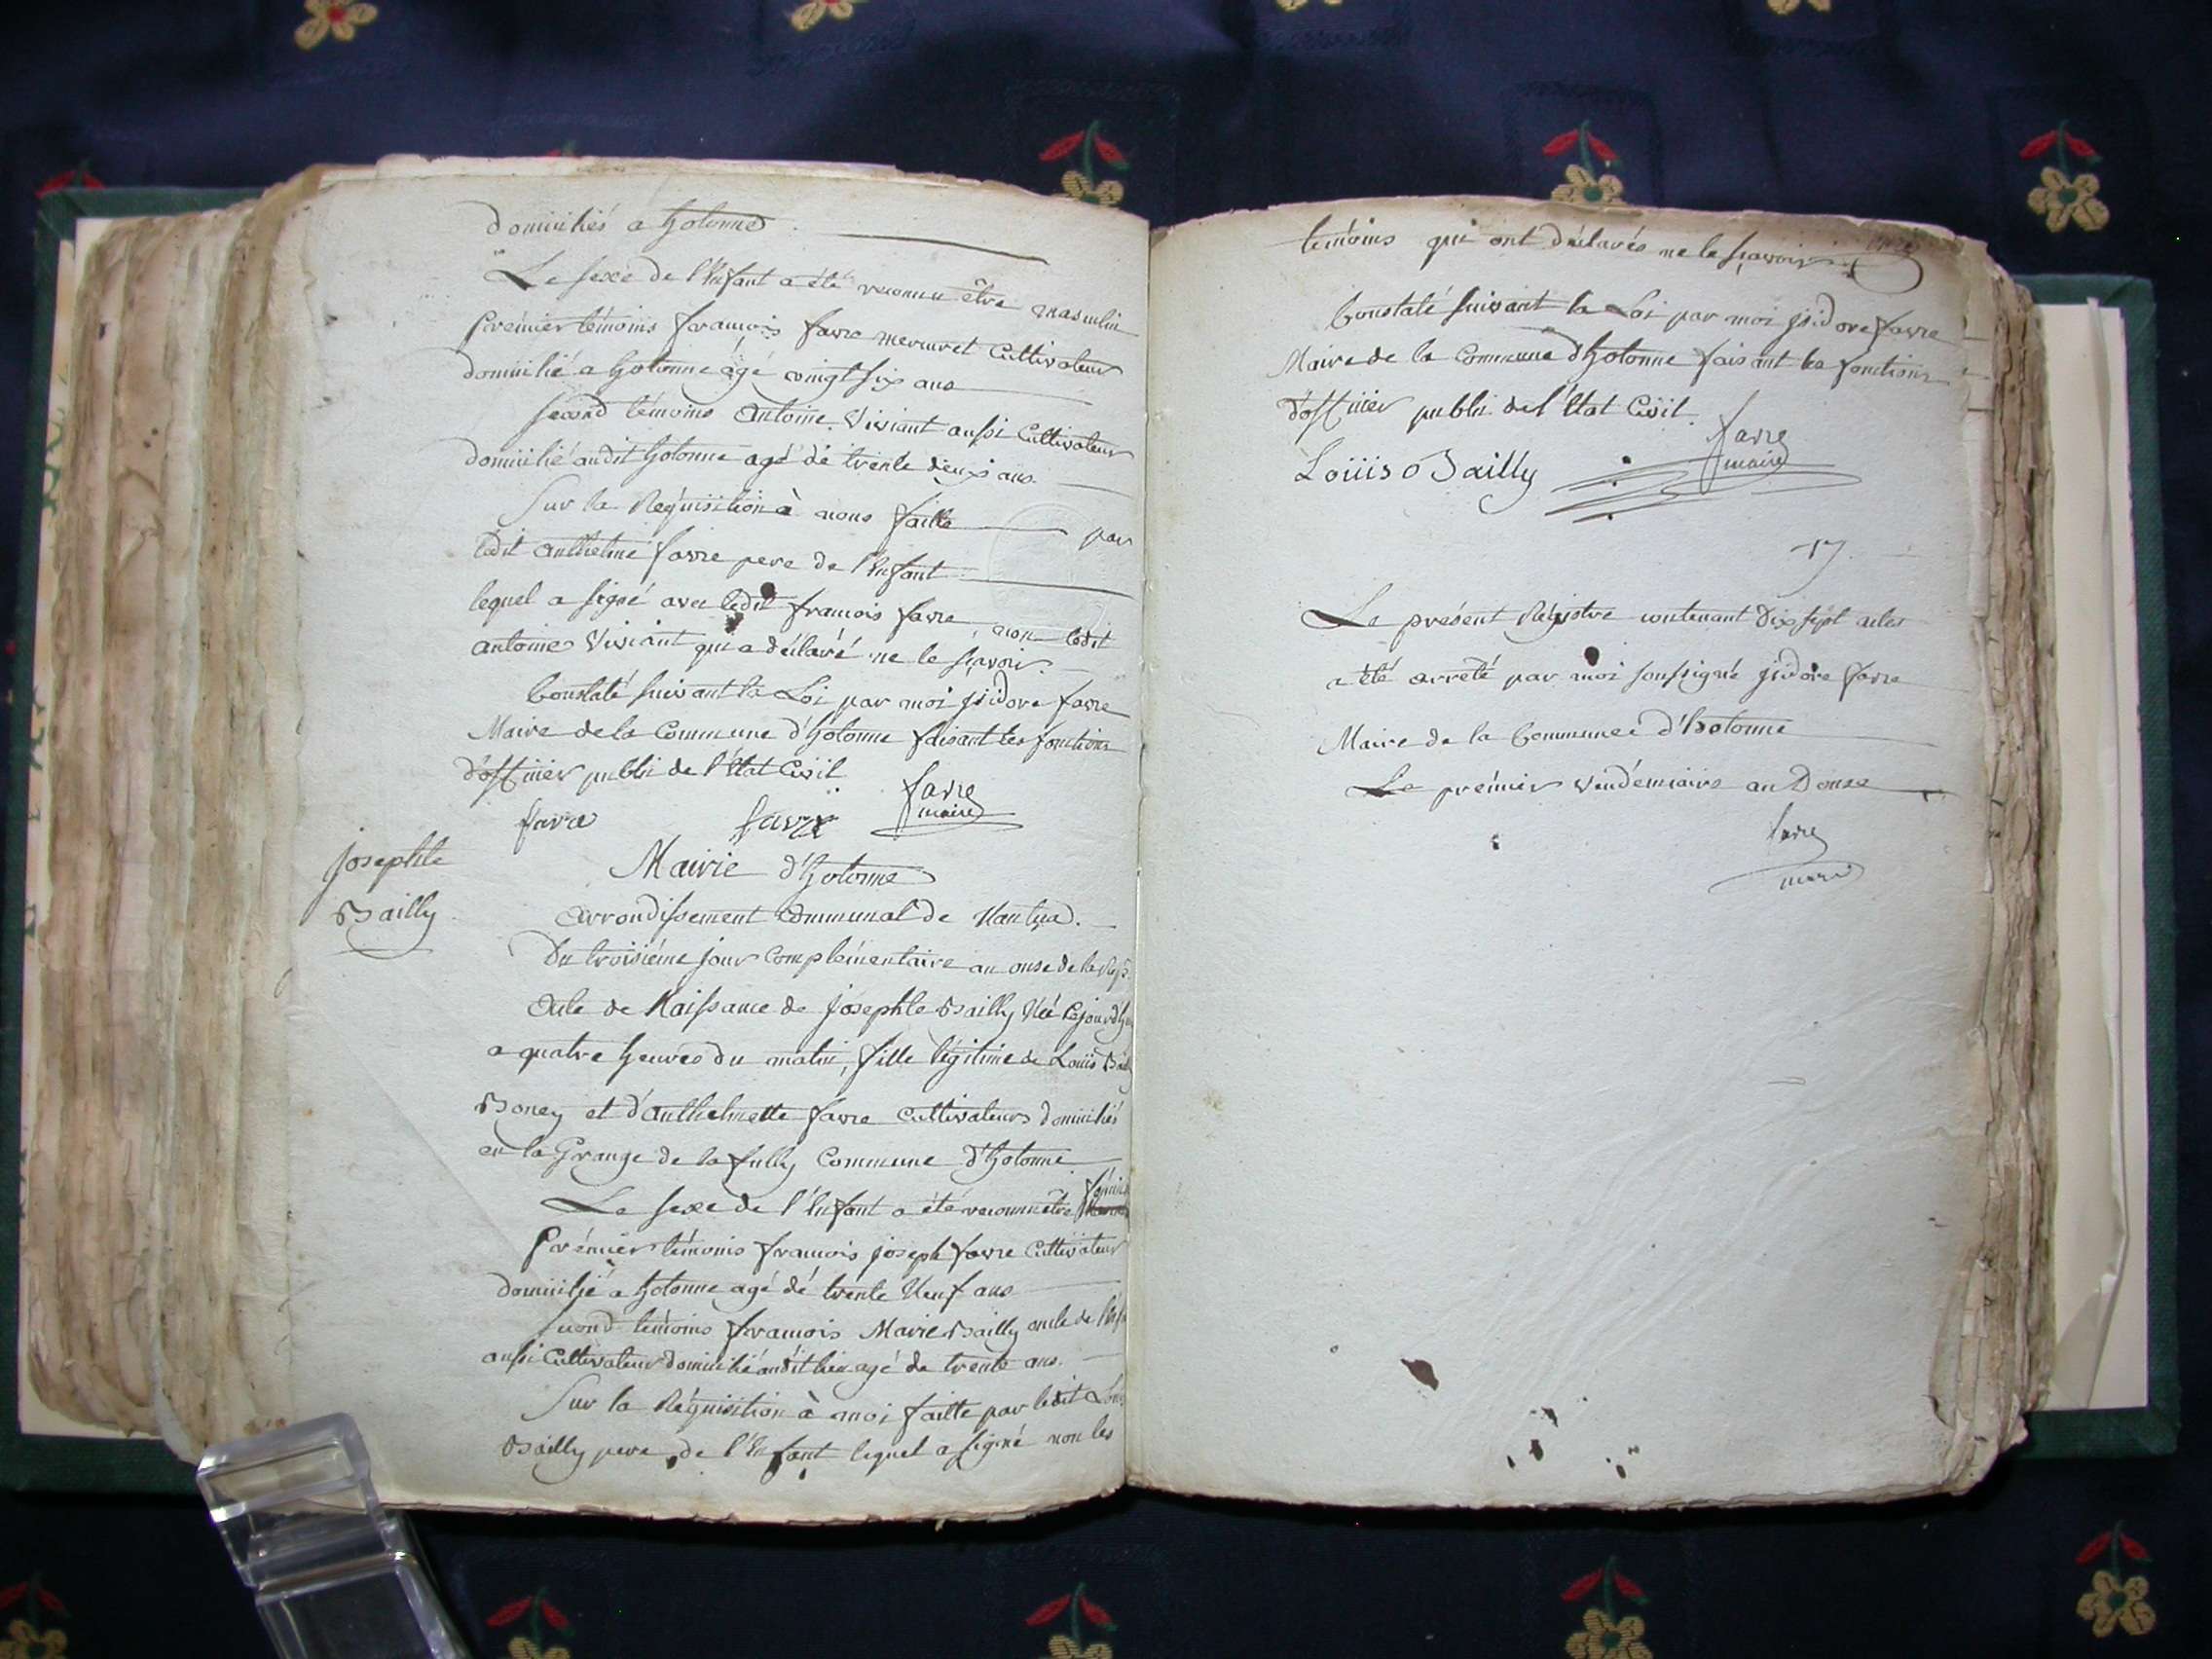 domiciliés a hotonne
Le sexe de l'Enfant a été reconnu être masculin
Prémier témoins francois favre mermet Cultivateur
domicilié a hotonne agé vingt six ans
second témoins antoine Viviant aussi Cultivateur
domicilié audit hotonne agé de trente deux ans
Sur la Réquisition à nous faitte par
ledit anthelme favre pere de l'Enfant
lequel a signé avec ledit francois favre, non ledit
antoine Viviant qui a déclaré ne le sçavoir
Constaté suivant la Loi par moi jsidore favre
Maire de la Commune d'hotonne faisant les fonctions
d'officier public de l'Etat Civil
favre favre favre
maire
Mairie d'hotonne
josephte
Bailly
arrondissement communal de Nantua.
Du troisiéme jour complémentaire an onse de la Rep.
acte de Naissance de josephte Bailly Née Cejourd'hui
a quatre heures du matin, fille légitime de Louis Bailly
Boney et d'anthelmette favre Cultivateurs domiciliés
en la Grange de la fully Commune d'hotonne
Le sexe de l'Enfant a été reconnu être féminin
Prémier témoins francois joseph favre Cultivateur
domicilié a hotonne agé dé trente Neuf ans
second témoins francois Marie Bailly oncle de l'Enf
aussi Cultivateur domicilié audit lieu agé de trente ans.
Sur la Réquisition à moi faitte par ledit Louis
Bailly pere de l'Enfant lequel a signé non les
témoins qui ont déclarés ne le sçavoir
Constaté suivant la Loi par moi jsidore favre
Maire de la Commune d'hotonne faisant les fonctions
d'officier public de l'Etat Civil.
Loüis Bailly favre
maire
17.
Le présent Régistre contenant Dix sept actes
a été arrêté par moi soussigné jsidore favre
Maire de la Commune d'hotonne
Le prémier vendémiaire an Douse
favre
maire